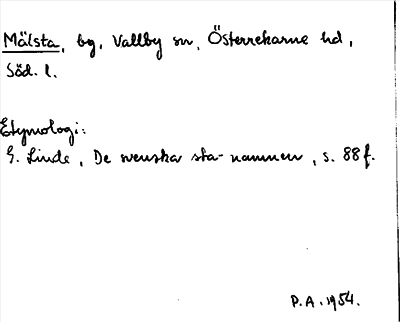 Mälsta, bg, Vallby sn, Österrekarne hd,
Söd. l.
Etymologi:
G. Linde, De svenska sta-namnen, s. 88 f.
P.A. 1954.